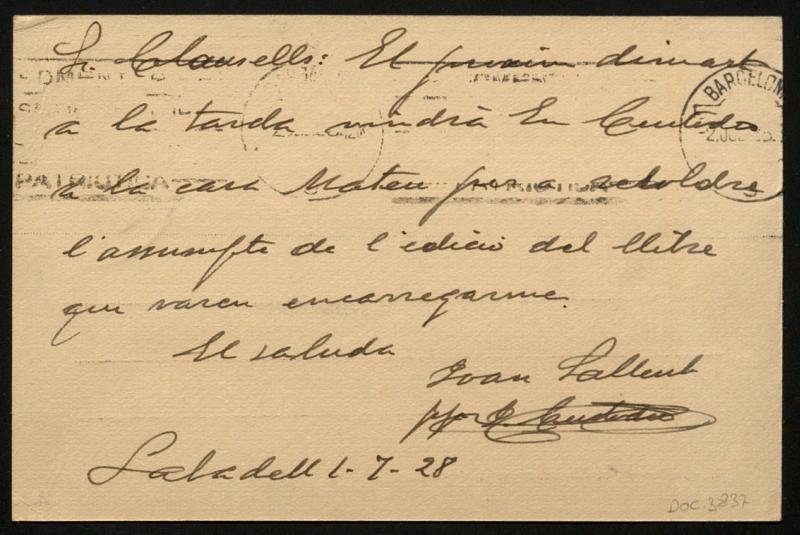 Sr. Clausells: El proxim dimart
a la tarda vindrà En Centidu
a la casa Mateu per a resoldre
l'assumpte de l'edició del llibre
que varen encarregarme.
El saluda
Joan Sallent
p/o
Sabadell 1-7-28
BARCELONA
PATRIOTICA
DOC. 3837